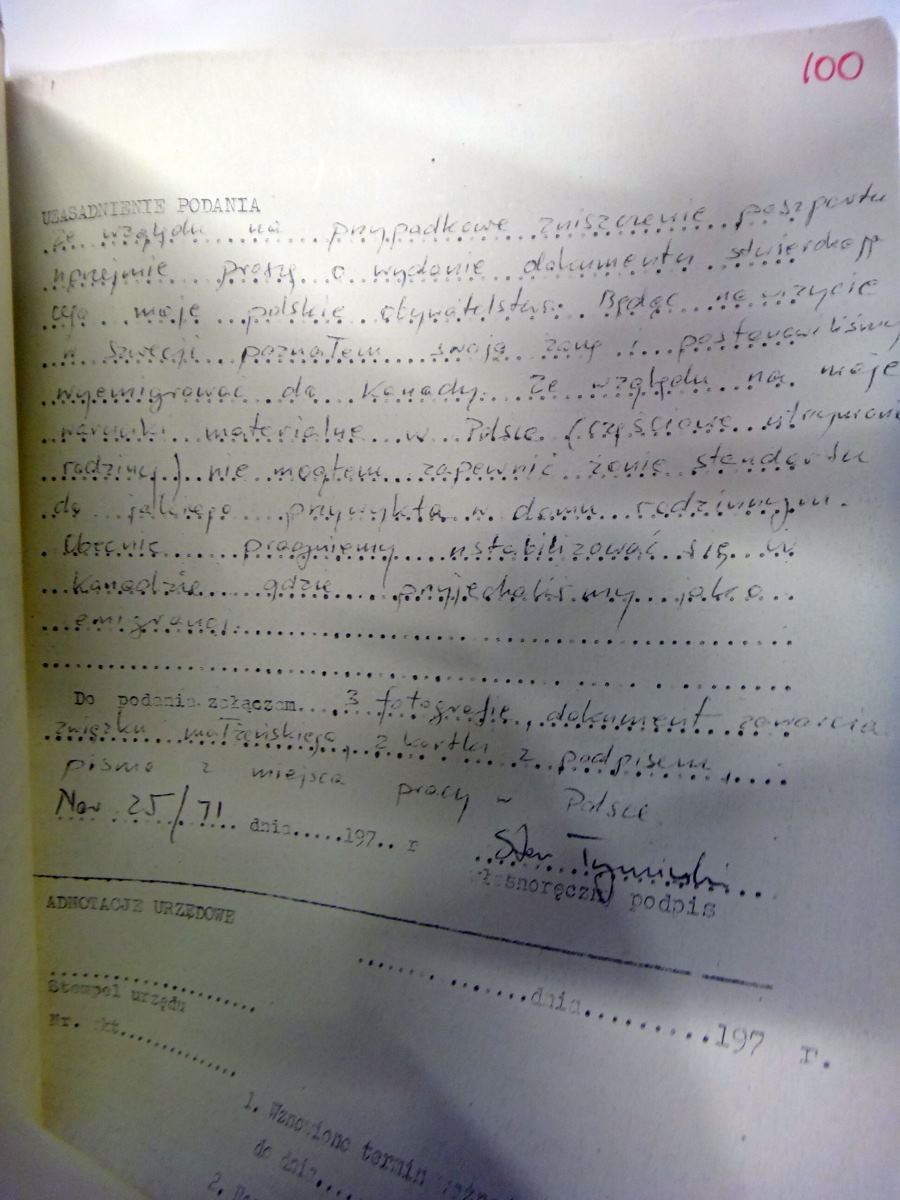 100
UZASADNIENIE PODANIA
Ze względu na przypadkowe zniszczenie paszportu
uprzejmie proszę o wydanie dokumentu stwierdzają
cego moje polskie obywatelstwo. Będąc na wizycie
w Szwecji poznałem swoją żonę i postanowiliśmy
wyemigrować do Kanady. Ze względu na moje
warunki materialne w Polsce (częściowe utrzymanie
rodziny) nie mogłem zapewnić żonie standartu
do jakiego przywykła w domu rodzinnym.
Obecnie pragniemy ustabilizować się w
Kanadzie gdzie przyjechaliśmy jako
emigranci.
Do podania załączam 3 fotografie, dokument zawarcia
związku małżeńskiego, 2 kartki z podpisem,
pismo z miejsca pracy w Polsce
Nov 25/71 dnia.....197.. r
Stan Tymiński
własnoręczny podpis
ADNOTACJE URZĘDOWE
dnia..........197 r.
Stempel urzędu
Nr. akt
1. Wznowiono termin
do dnia
2.